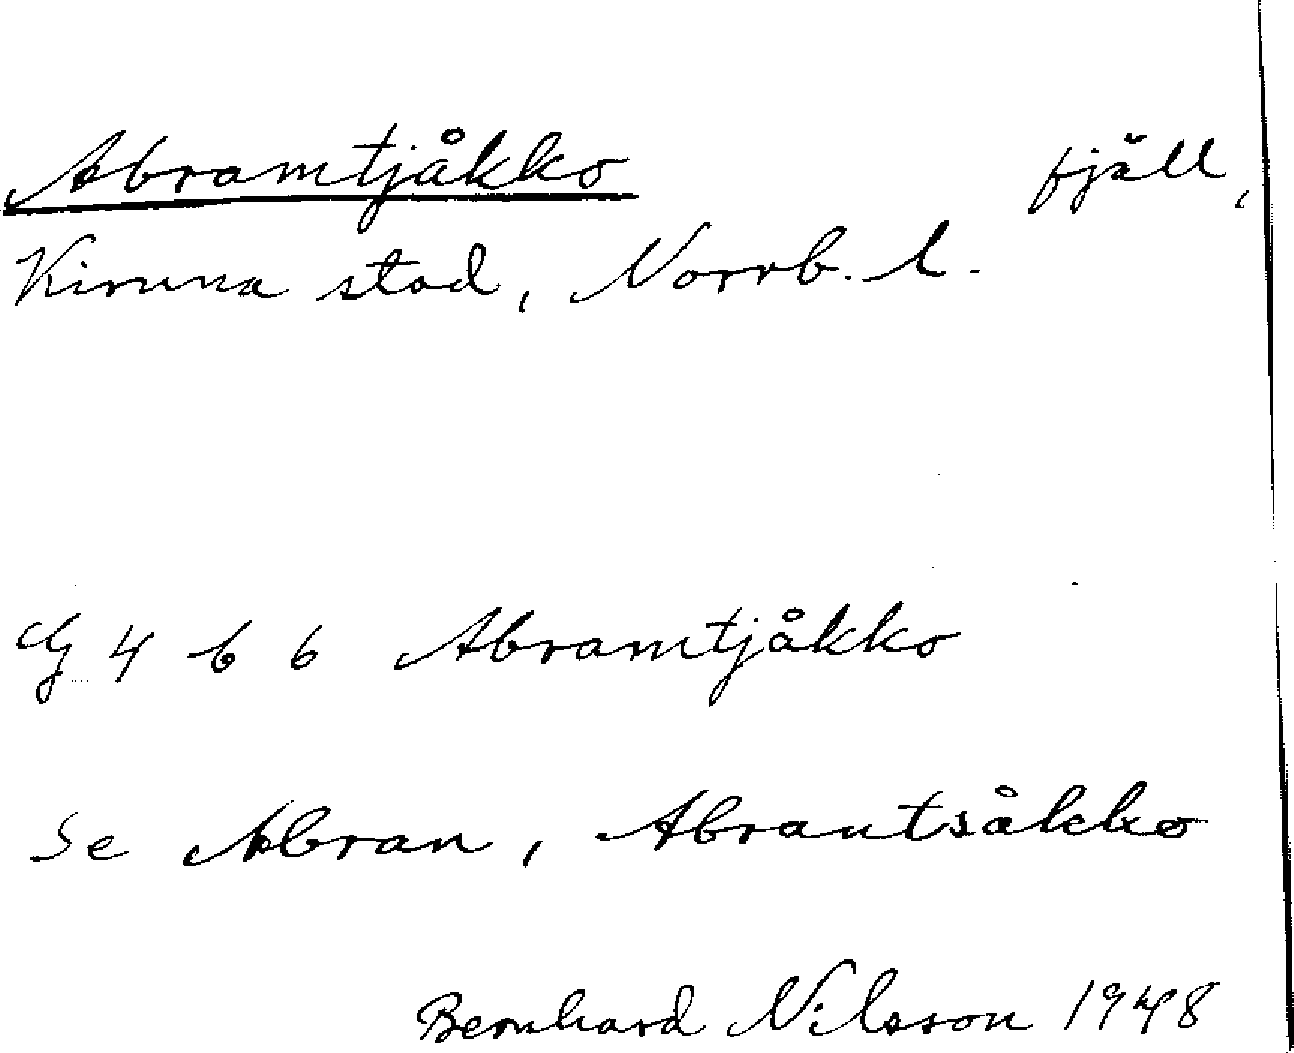 Abramtjåkko fjäll,
Kiruna stad, Norrb. l.
G 4 b 6 Abramtjåkko
Se Abran, Abrantsåkko
Bernhard Nilsson 1948